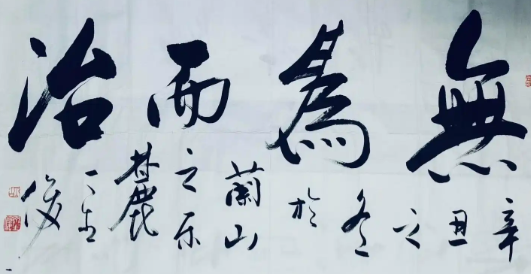 無為而治
辛丑
之
冬
於
蘭山
之东
麓
俊